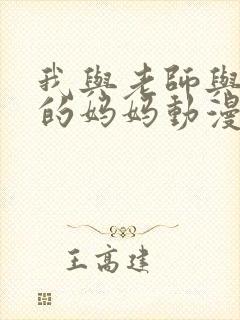 我與老師與
的妈妈動漫
王高建